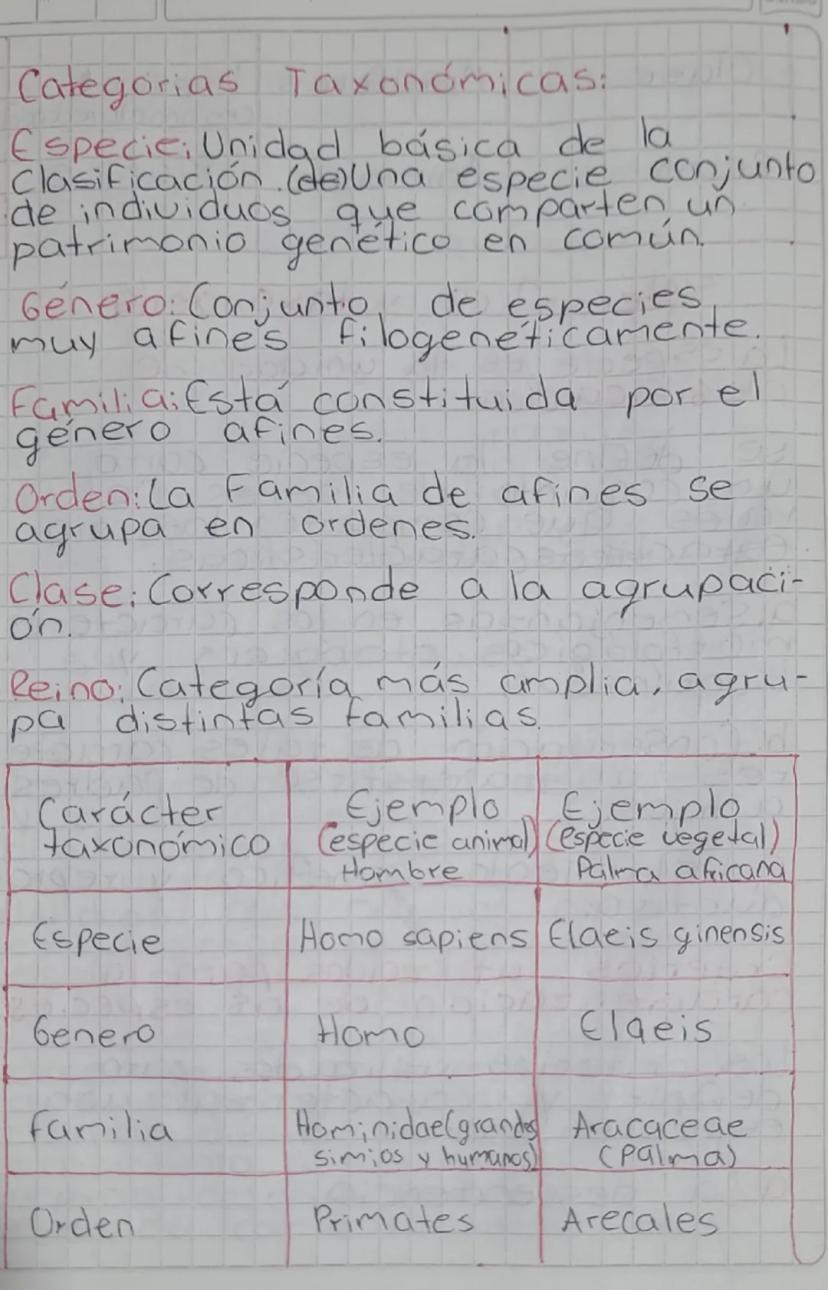 Categorias Taxonómicas:
Especie: Unidad básica de la
clasificación. (de) Una especie conjunto
de individuos que comparten un
patrimonio genético en común.
Género: Conjunto de especies
muy afines filogenéticamente.
Familia: Está constituida por el
género afines.
Orden: La Familia de afines se
agrupa en ordenes.
Clase: Corresponde a la agrupaci-
ón.
Reino: Categoría más amplia, agru-
pa distintas familias.
Carácter Ejemplo Ejemplo
taxonómico (especie animal) (especie vegetal)
Hombre Palma africana
Especie Homo sapiens Elaeis ginensis
Genero Homo Elaeis
familia Hominidae (grandes Aracaceae
simios y humanos) (Palma)
Orden Primates Arecales